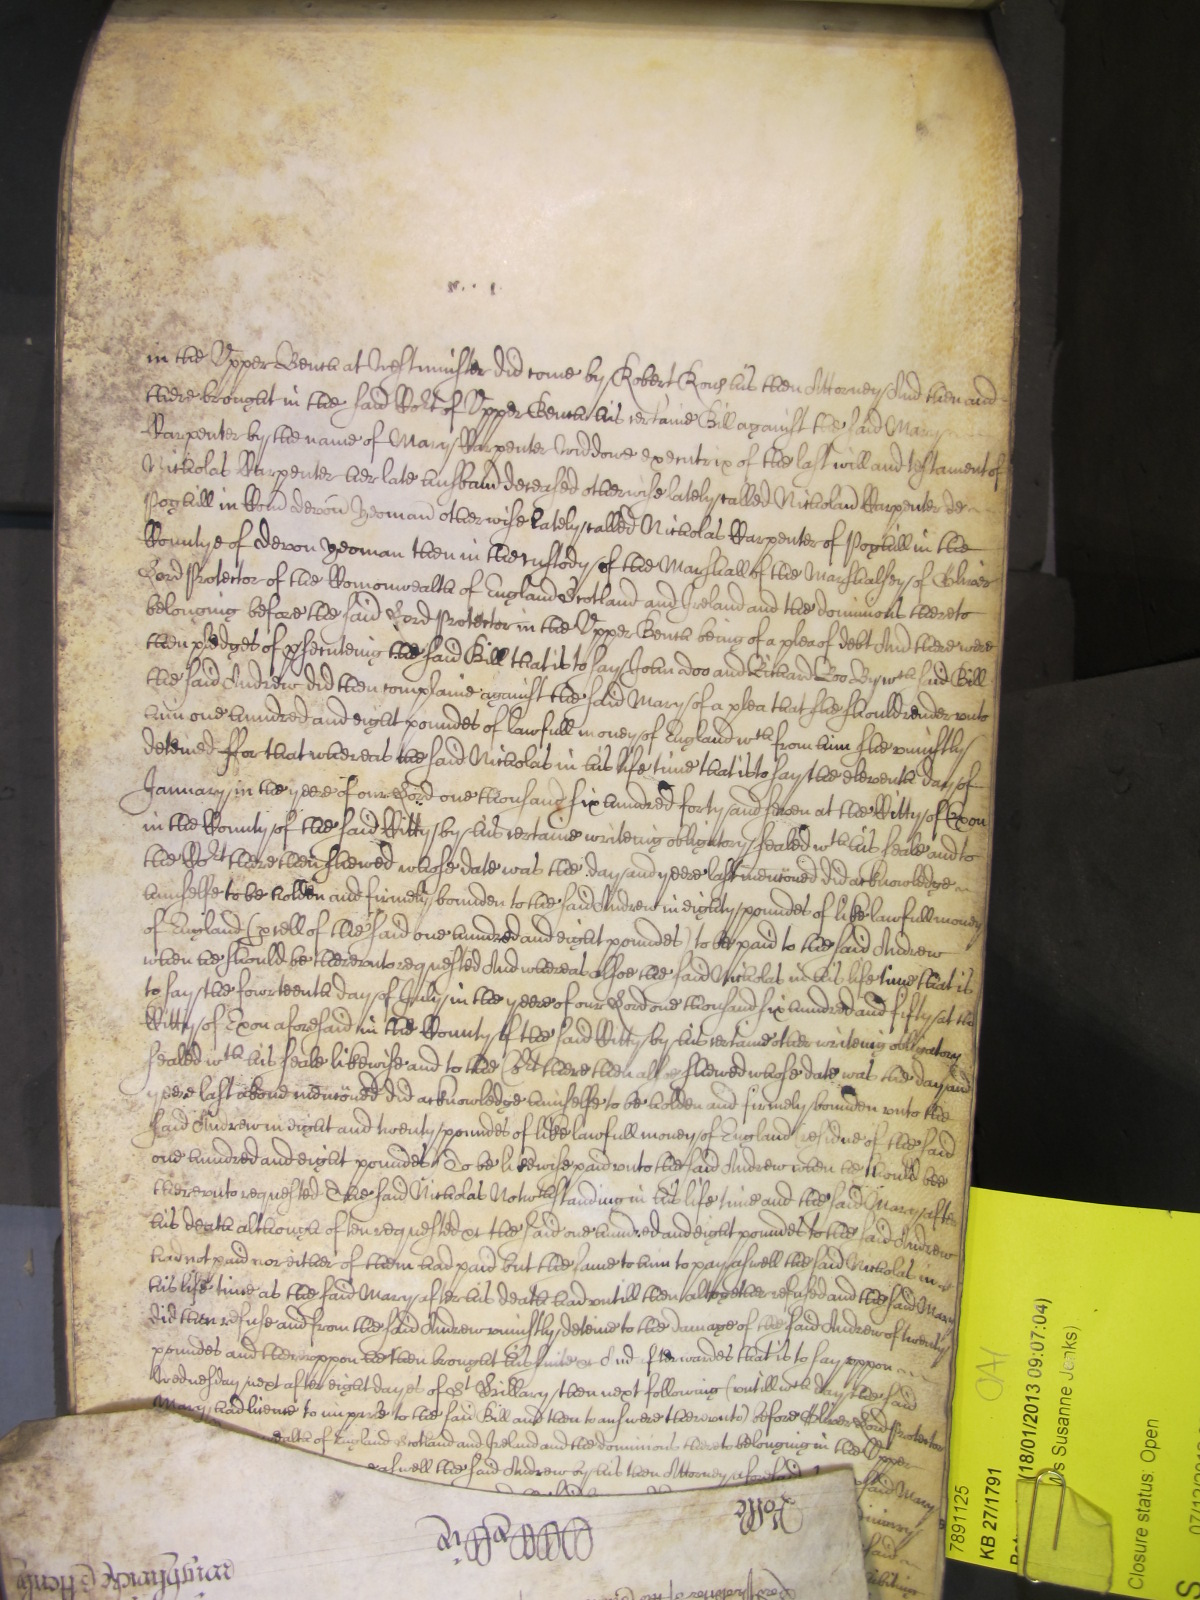 in the Upper Bench at Westminster did come by Robert his then Attorney And then and
there brought in the said Cort of Upper Bench his certaine Bill against the said Mary
Carpenter by the name of Mary Carpenter Widdowe executrix of the last will and testament of
Nicholas Carpenter her late husband deceased otherwise lately called Nicholas Carpenter de
Poghill in Com devon yeoman otherwise lately called Nicholas Carpenter of Poghill in the
Countye of Devon yeoman then in the custody of the Marshall of the Marshalsey of Oliver
Lord Protector of the Comonwealth of England Scotland and Ireland and the dominions thereto
belonging before the said Lord Protector in the Upper Bench being of a plea of debt And there were
then pledges of psecuteing the said Bill that is to say John Doo and Richard Roo By wch said Bill
the said Andrew did then complaine against the said Mary of a plea that shee should render unto
him one hundred and eight poundes of lawfull money of England wch from him shee uniustly
deteined ffor that whereas the said Nicholas in his life time that is to say the eleventh day of
January in the yeere of our Lord one thousand six hundred forty and seven at the Citty of Exon
in the County of the said Citty by his certaine writeing obligatory sealed wth his seale and to
the Cort there then shewed whose date was the day and yeere last menconed did acknowledge
himselfe to be holden and firmely bounden to the said Andrew in eighty poundes of like lawfull money
of England (pcell of the said one hundred and eight poundes) to be paid to the said Andrew
when he should be thereunto requested And whereas alsoe the said Nicholas in his life time that is
to say the fowrteenth day of July in the yeere of our Lord one thousand six hundred and fifty at the
Citty of Exon aforesaid in the County of the said Citty by his certaine other writeing obligatory
sealed wth his seale likewise and to the Cort there then alsoe shewed whose date was the day and
yeere last above menconed did acknowledge himselfe to be holden and firmely bounden unto the
said Andrew in eight and twenty poundes of like lawfull money of England residue of the said
one hundred and eight poundes To be likewise paid unto the said Andrew when he should be
thereunto requested The said Nicholas Notwthstanding in his life time and the said Mary after
his death although often requested &c the said one hundred and eight poundes to the said Andrew
had not paid nor either of them had paid but the same to him to pay aswell the said Nicholas in
his life time as the said Mary after his death had untill then altogether refused and the said Mary
did then refuse and from the said Andrew uniustly deteine to the damage of the said Andrew of twenty
poundes and thereuppon he then brought his suite &c And afterwardes that is to say uppon
Wednesday next after eight dayes of St Hillary then next following (untill wch day the said
Mary had licence to imparle to the said Bill and then to answere thereunto) before Oliver Lord Protector
of England Scotland and Ireland and the dominions thereto belonging in the Upper
aswell the said Andrew by his then Attorney aforesaid
said Mary
said
Rolle
7891125
KB 27/1791
(18/01/2013 09:07:04)
Susanne Jenks)
Closure status: Open